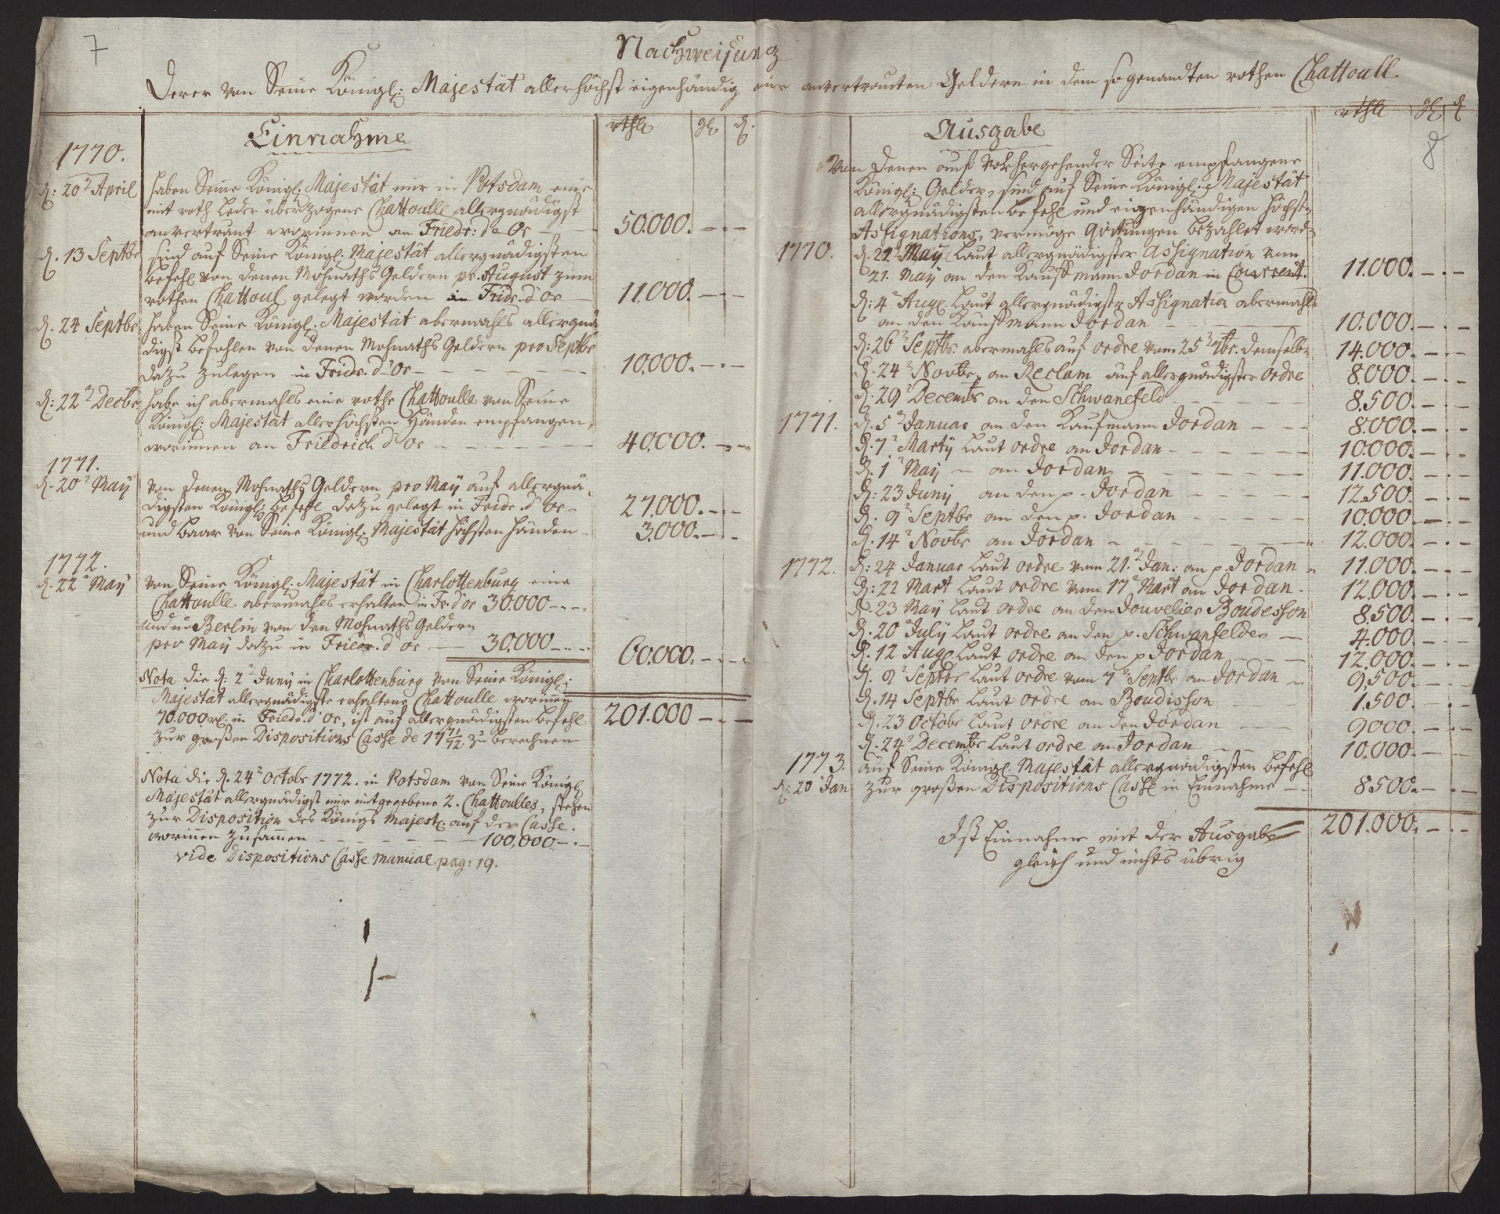 7
Nachweisung
Derer von Seine Königl: Majestät allerhöchst eigenhändig mir anvertrauten Geldern in dem sogenandten rothen Chattoull.
Einnahme
rthlr
gl
d.
1770.
d: 20t April
haben Seine Königl: Majestät mir in Potsdam eine
mit roth Leder überzogene Chattoulle allergnädigst
anvertraut worinnen an Friedr: d'Or — — 50.000. — . —
d. 13 Septbr
sind auf Seine Königl. Majestät allergnädigsten
Befehl von denen Mohnaths Geldern pr. August zum
rothen Chattoul gelegt worden in Fridr. d'Or — 11.000. — . —
d. 24 Septbr:
haben Seine Königl. Majestät abermahls allergnä
digst befohlen von denen Mohnaths Geldern pro Septbr
dazu zulegen in Fridr. d'Or — — — — — 10.000. — . —
d: 22t Decbr
habe ich abermahls eine rothe Chattoulle von Seine
Königl: Majestät allerhöchsten Händen empfangen,
worinnen an Friedrich d'Or — — — — 40.000. — . —
1771.
d. 20t May
Von denen Mohnaths Geldern pro May auf allergnä-
digsten Königl: Befehl dazu gelegt in Fridr. d'Or — 27.000. — . —
und baar von Seine Königl. Majestät höchsten Händen — 3.000. — . —
1772.
d. 22t May
von Seine Königl. Majestät in Charlottenburg eine
Chattoulle abermahls erhalten in Fr. d'Or 30.000 — . —
und in Berlin von den Mohnaths Geldern
pro May dazu in Friedr. d'Or — 30.000 — . — 60.000. — . —
Nota die d: 2t Juny in Charlottenburg von Seine Königl:
Majestät allergnädigste erhaltene Chattoulle worinnen
70.000 rl. in Friedr. d'Or, ist auf allergnädigsten Befehl 201.000 — . —
zur großen Dispositions Casse de 17 71/72 zu berechnen
Nota die d. 24t Octobr 1772. in Potsdam von Seine Königl.
Majestät allergnädigst mir mitgegebene 2. Chattoulles, stehen
zur Disposition des Königs Majest: auf der Casse.
worinnen zusammen — — — — — 100.000 — . —
vide Dispositions Casse manual pag: 19.
Ausgabe
rthlr
gl
d
8
Von denen auf vorhergehender Seite empfangene
Königl: Gelder, sind auf Seine Königl: Majestät
allergnädigsten Befehl und eigenhändigen höchst
Assignations, vermöge Quitungen bezahlet worden
1770.
d. 22 May Laut allergnädigster Assignation vom
21. May an den Kauffmann Jordan in Courrent. 11.000. — . —
d: 4t Aug. Laut allergnädigster Assignation abermahls
an den Kauffmann Jordan — — — 10.000. — . —
d: 26t Septbr. abermahls auf ordre vom 25t 7br. demselben 14.000. — . —
d. 24t Novbr. an Reclam auf allergnädigster Ordre 8.000. — . —
d: 29t Decembr an den Schwanefeld — — — 8.500. — . —
1771.
d: 5t Januar an den Kaufmann Jordan — — 8.000. — . —
d. 7t Marty Laut ordre an Jordan — — — 10.000. — . —
d. 1t May — an Jordan — — — — 11.000. — . —
d: 23 Juny an den p. Jordan — — — 12.500. — . —
d. 9t Septbr an den p. Jordan — — — 10.000 — . —
d. 14t Novbr an Jordan — — — — 12.000. — . —
1772.
d: 24 Januar Laut ordre vom 21.t Jan: an p. Jordan 11.000. — . —
d: 22 Mart Laut ordre vom 17t Mart an Jordan. 12.000. — . —
d. 23 May Laut ordre an den Jouvelier Boudesson 8.500. — . —
d. 20t July Laut ordre an den p. Schwanfelder — 4.000. — . —
d. 12 Aug Laut ordre an den p Jordan — — 12.000. — . —
d. 9t Septbr Laut ordre vom 7t Septbr an Jordan — 9.500. — . —
d. 14 Septbr Laut ordre an Boudisson — — 1.500. — . —
d. 23 Octobr Laut ordre an den Jordan — — 9000. — . —
d. 24t Decembr Laut ordre an Jordan — — 10.000. — . —
1773
d: 20t Jan
auf Seine Königl. Majestät allergnädigsten Befehl
zur großen Dispositions Casse in Einnahme — 8.500. — . —
201.000. — . —
Ist Einnahme mit der Ausgabe
gleich und nichts übrig